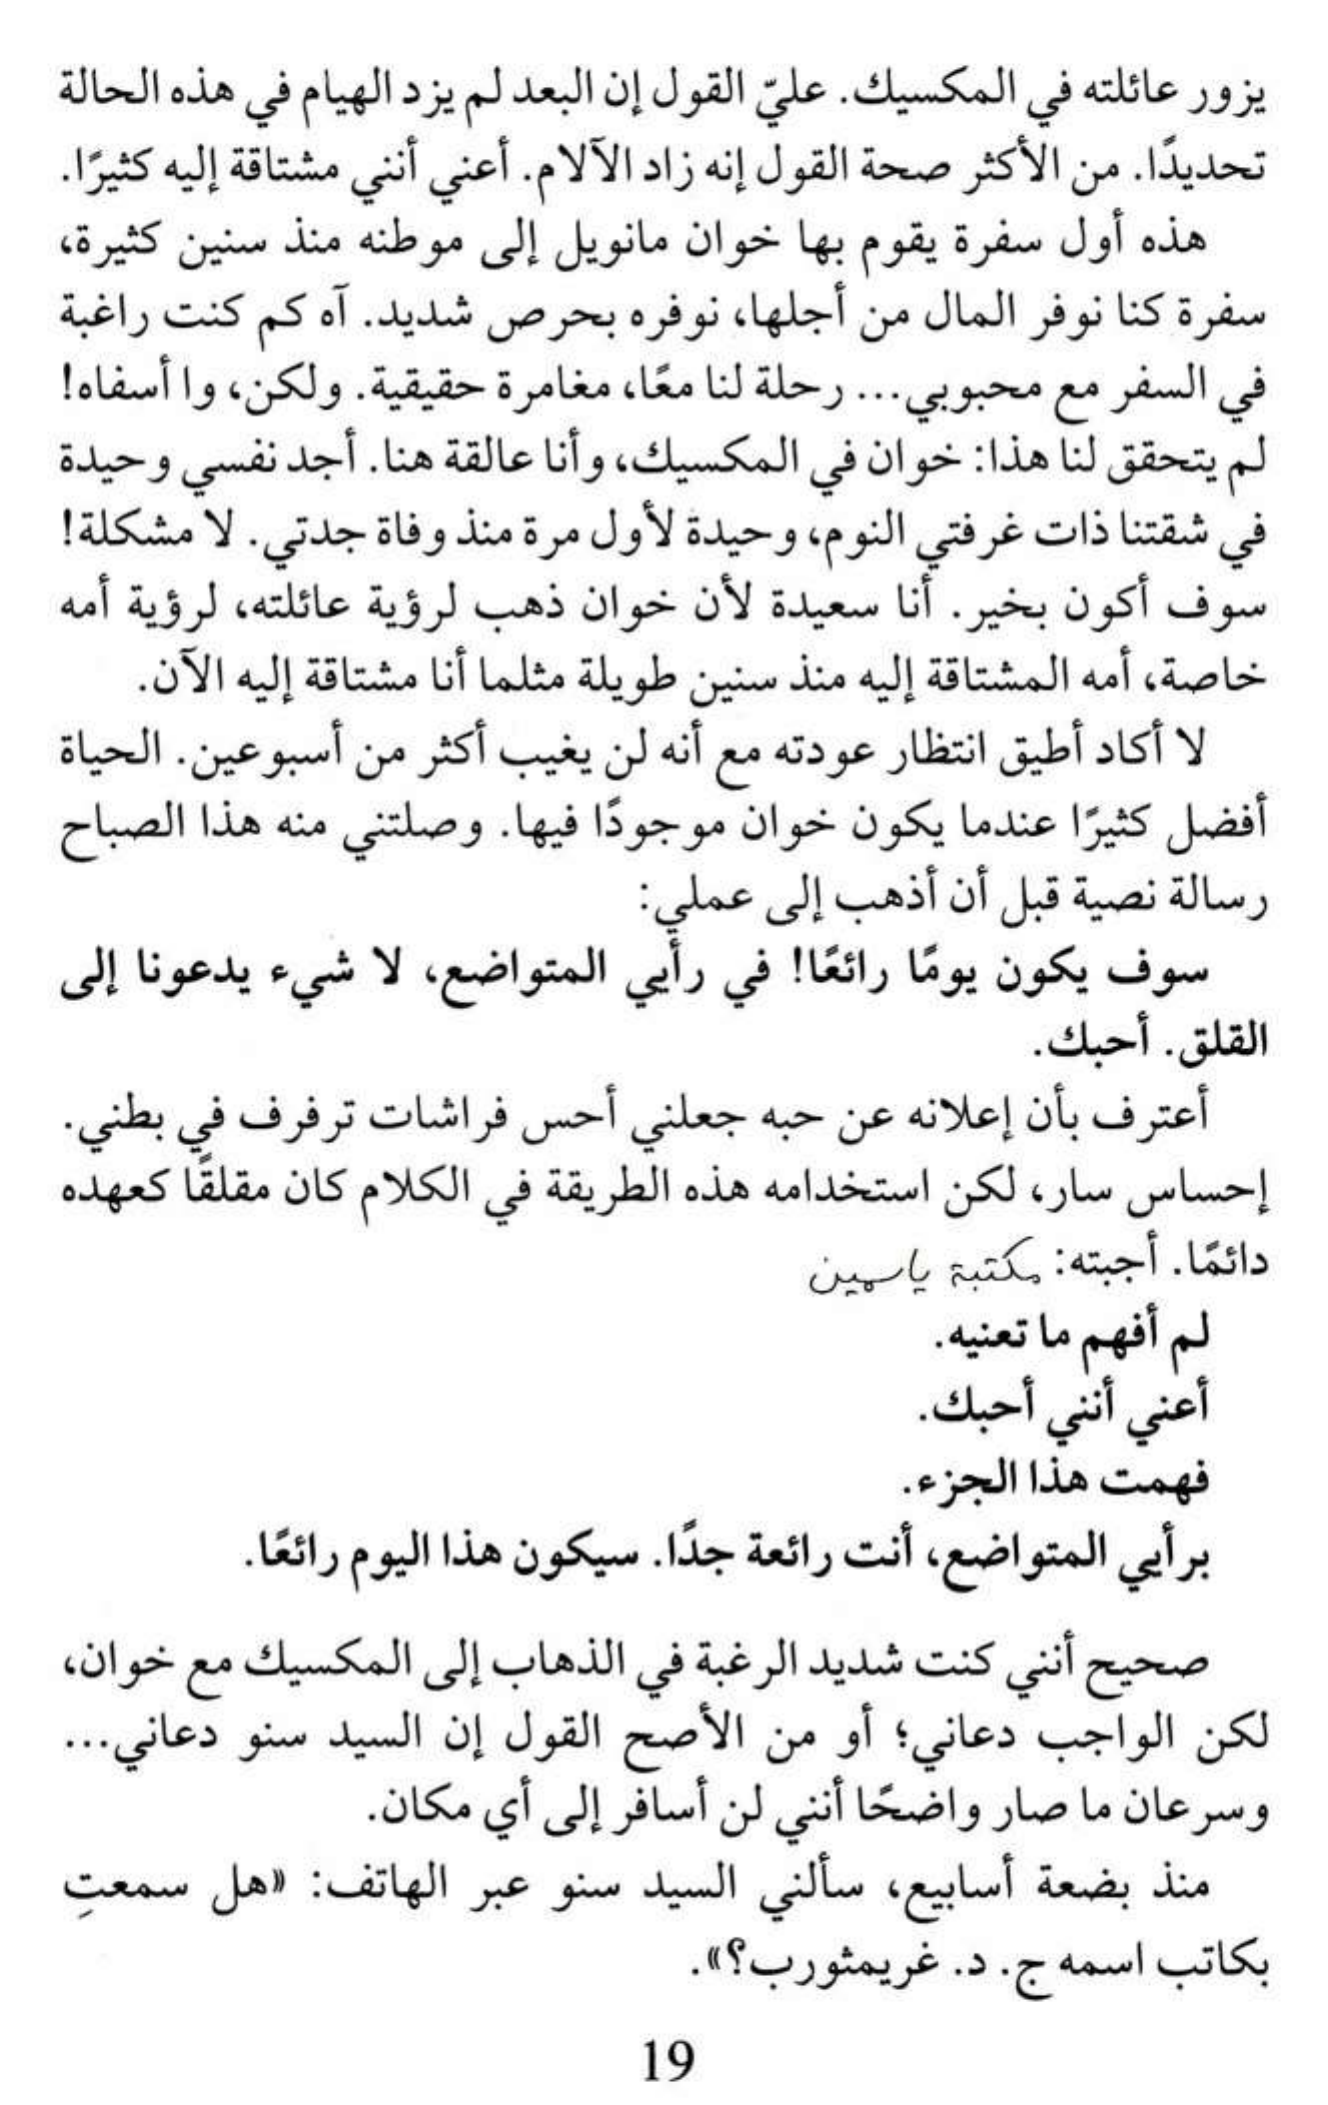 يزور عائلته في المكسيك. عليّ القول إن البعد لم يزد الهيام في هذه الحالة
تحديدًا. من الأكثر صحة القول إنه زاد الآلام. أعني أنني مشتاقة إليه كثيرًا.
هذه أول سفرة يقوم بها خوان مانويل إلى موطنه منذ سنين كثيرة،
سفرة كنا نوفر المال من أجلها، نوفره بحرص شديد. آه كم كنت راغبة
في السفر مع محبوبي... رحلة لنا معًا، مغامرة حقيقية. ولكن، وا أسفاه!
لم يتحقق لنا هذا: خوان في المكسيك، وأنا عالقة هنا. أجد نفسي وحيدة
في شقتنا ذات غرفتي النوم، وحيدة لأول مرة منذ وفاة جدتي. لا مشكلة!
سوف أكون بخير. أنا سعيدة لأن خوان ذهب لرؤية عائلته، لرؤية أمه
خاصة، أمه المشتاقة إليه منذ سنين طويلة مثلما أنا مشتاقة إليه الآن.
لا أكاد أطيق انتظار عودته مع أنه لن يغيب أكثر من أسبوعين. الحياة
أفضل كثيرًا عندما يكون خوان موجودًا فيها. وصلتني منه هذا الصباح
رسالة نصية قبل أن أذهب إلى عملي:
سوف يكون يومًا رائعًا! في رأيي المتواضع، لا شيء يدعونا إلى
القلق. أحبك.
أعترف بأن إعلانه عن حبه جعلني أحس فراشات ترفرف في بطني.
إحساس سار، لكن استخدامه هذه الطريقة في الكلام كان مقلقًا كعهده
دائمًا. أجبته: مكتبة ياسمين
لم أفهم ما تعنيه.
أعني أنني أحبك.
فهمت هذا الجزء.
برأيي المتواضع، أنت رائعة جدًا. سيكون هذا اليوم رائعًا.
صحيح أنني كنت شديد الرغبة في الذهاب إلى المكسيك مع خوان،
لكن الواجب دعاني؛ أو من الأصح القول إن السيد سنو دعاني...
وسرعان ما صار واضحًا أنني لن أسافر إلى أي مكان.
منذ بضعة أسابيع، سألني السيد سنو عبر الهاتف: «هل سمعتِ
بكاتب اسمه ج. د. غريمثورب؟».
19